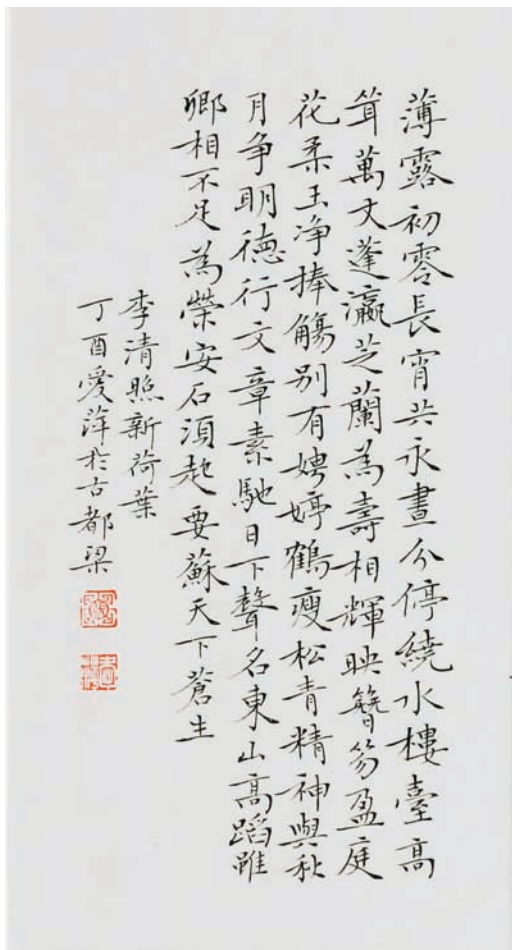 薄露初零長宵共永晝分停繞水樓臺高
耸萬丈蓬瀛芝蘭為壽相輝映簪笏盈庭
花柔玉净捧觴別有娉婷鶴瘦松青精神與秋
月争明德行文章素馳日下聲名東山高蹈雖
卿相不足為榮安石須起要蘇天下蒼生
李清照新荷葉
丁酉愛萍於古都梁